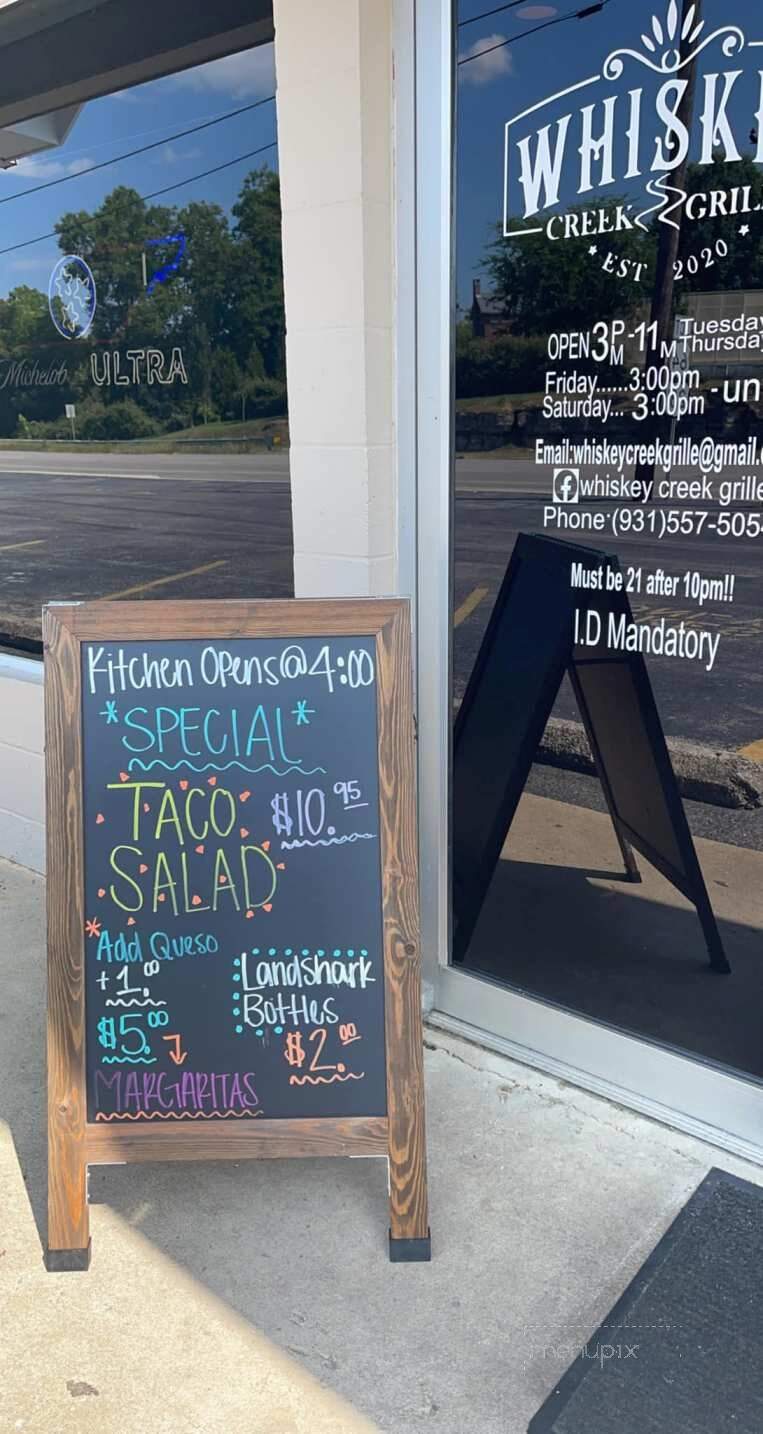 Kitchen Opens@4:00
*SPECIAL*
TACO
SALAD
$10.95
*Add Queso
+1.00
$5.00
MARGARITAS
Landshark
Bottles
$2.00
Michelob ULTRA
WHISKE
CREEK GRILL
* EST 2020 *
OPEN 3PM-11PM Tuesday
Thursday
Friday......3:00pm
Saturday... 3:00pm
-un
Email:whiskeycreekgrille@gmail.
whiskey creek grille
Phone (931)557-505
Must be 21 after 10pm!!
I.D Mandatory
menupix